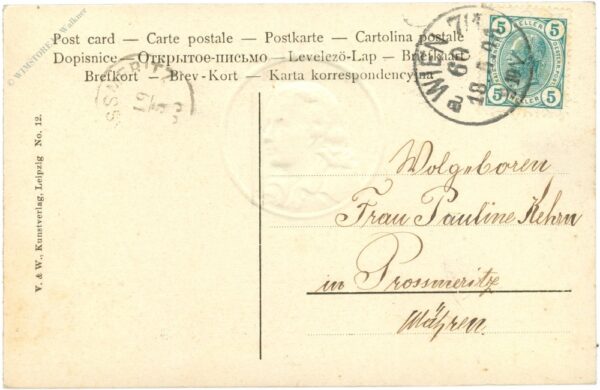 © WIMSTOREN Walkner
Post card — Carte postale — Postkarte — Cartolina postale
Dopisnice — Открытое-письмо — Levelező-Lap — Briefkaart
Brefkort — Brev-Kort — Karta korrespondencyjna
WIEN 7/1
60
18
a
5 5
HELLER
5 5
19
V. & W., Kunstverlag, Leipzig No. 12.
Wolgeboren
Frau Pauline Kehrn
in Prossmeritz
Mähren.